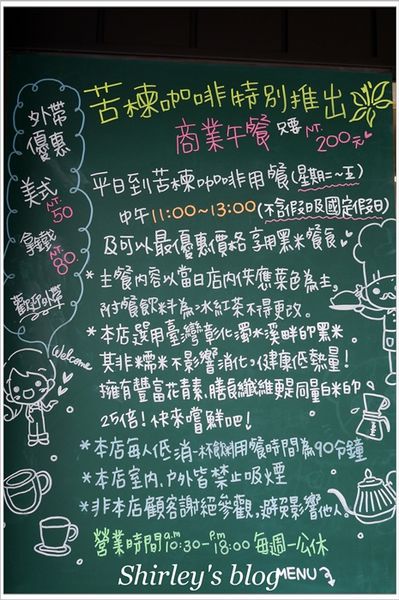 苦楝咖啡特別推出
商業午餐 只要 NT.200元
外帶
優惠
美式
NT.50
拿鐵
NT.80
歡迎外帶
平日到苦楝咖啡用餐(星期二~五)
中午11:00~13:00(不含假日及國定假日)
及可以最優惠價格享用黑米餐食
*主餐內容以當日店內供應菜色為主,
附餐飲料為冰紅茶不得更改。
*本店選用臺灣彰化濁水溪畔的黑米
其非糯米不影響消化,健康低熱量!
擁有豐富花青素.膳食纖維更是同量白米的
25倍!快來嚐鮮吧!
Welcome
*本店每人低消一杯飲料用餐時間為90分鐘
*本店室內.戶外皆禁止吸煙
*非本店顧客謝絕參觀,避免影響他人。
營業時間a.m10:30-P.m18:00每週一公休
Shirley's blog
MENU